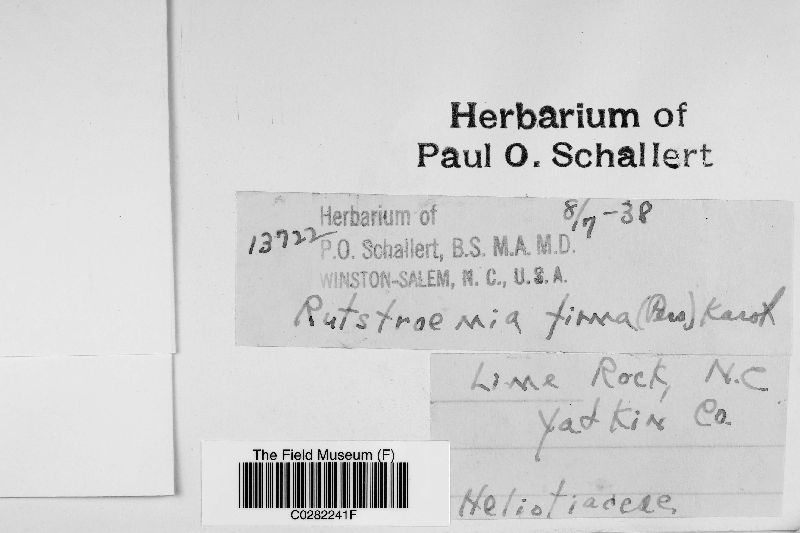 Herbarium of
Paul O. Schallert
Herbarium of 8/7-38
13722 P.O. Schallert, B.S. M.A. M.D.
WINSTON-SALEM, N. C., U.S.A.
Rutstroemia firma (Pers) Karst
Lime Rock, N.C
Yadkin Co.
Heliotiaceae
The Field Museum (F)
C0282241F